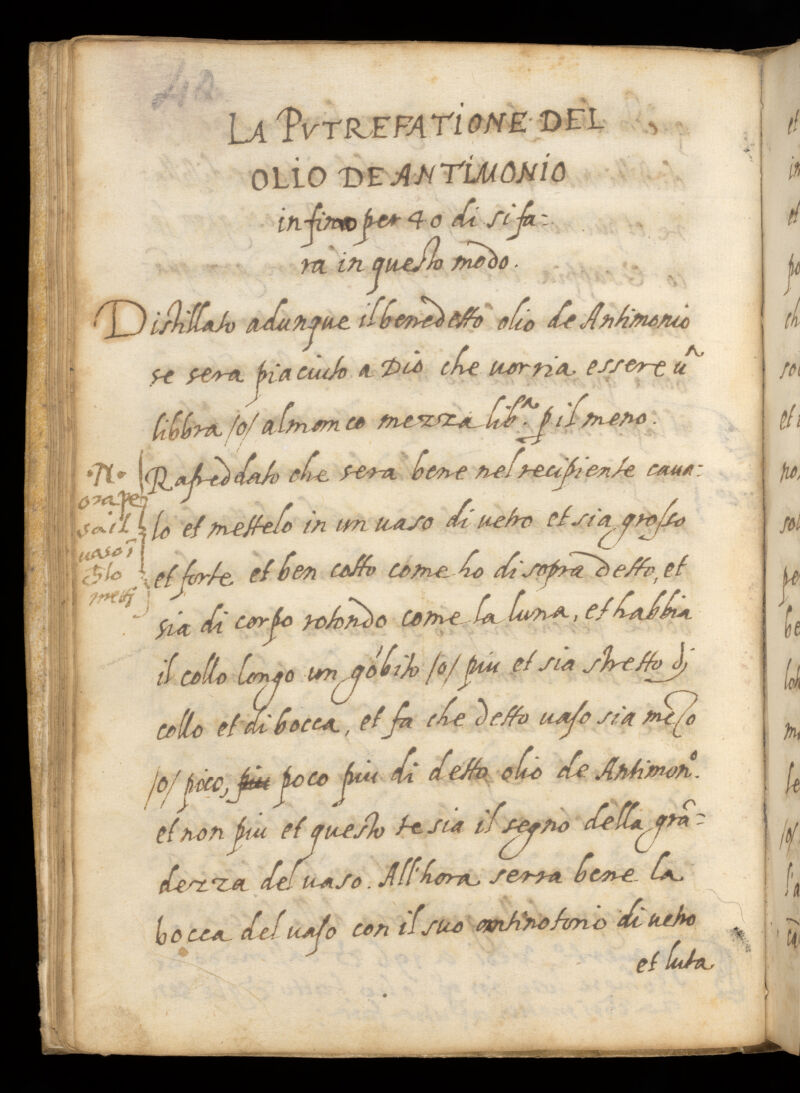 42
LA PVTREFATIONE DEL
OLIO DE ANTIMONIO
infino per 40 di si fa=
ra in questo modo.
Distillato adunque il benedetto olio de Antimonio
se sera piaciuto a Dio che uorria essere ũᵃ
libbra /o/ almonco mezza lib.ᵃ p il meno.
Rafreddato che sera bene nel recipiente caua=
lo et mettelo in un uaso di uetro et sia grosso
et forte et ben cotto come ho di sopra detto, et
sia di corpo rotondo come la luna, et habbia
il collo longo un góbito /o/ piu et sia stretto dj
collo et di bocca, et fa che detto uaso sia mezo
/o/ pico, piu poco piu di detto olio de Antimonº.
et non piu et questo te sia il segno della grã=
dezza del uaso. All'hora serra bene la
bocca del uaso con il suo antinotorio di uetro
et luta
·N·
ora pe
sa il
uaso ĩ
metti